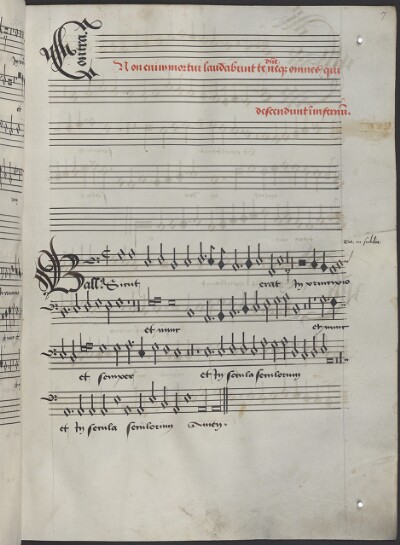 7
Contra
Non enim mortui laudabunt te dñe neq; omnes qui
descendunt in infernũ.
Bass9 Sicut erat In principio
et nunc et nunc
et semper et In secula seculorum
et In secula seculorum Amen.